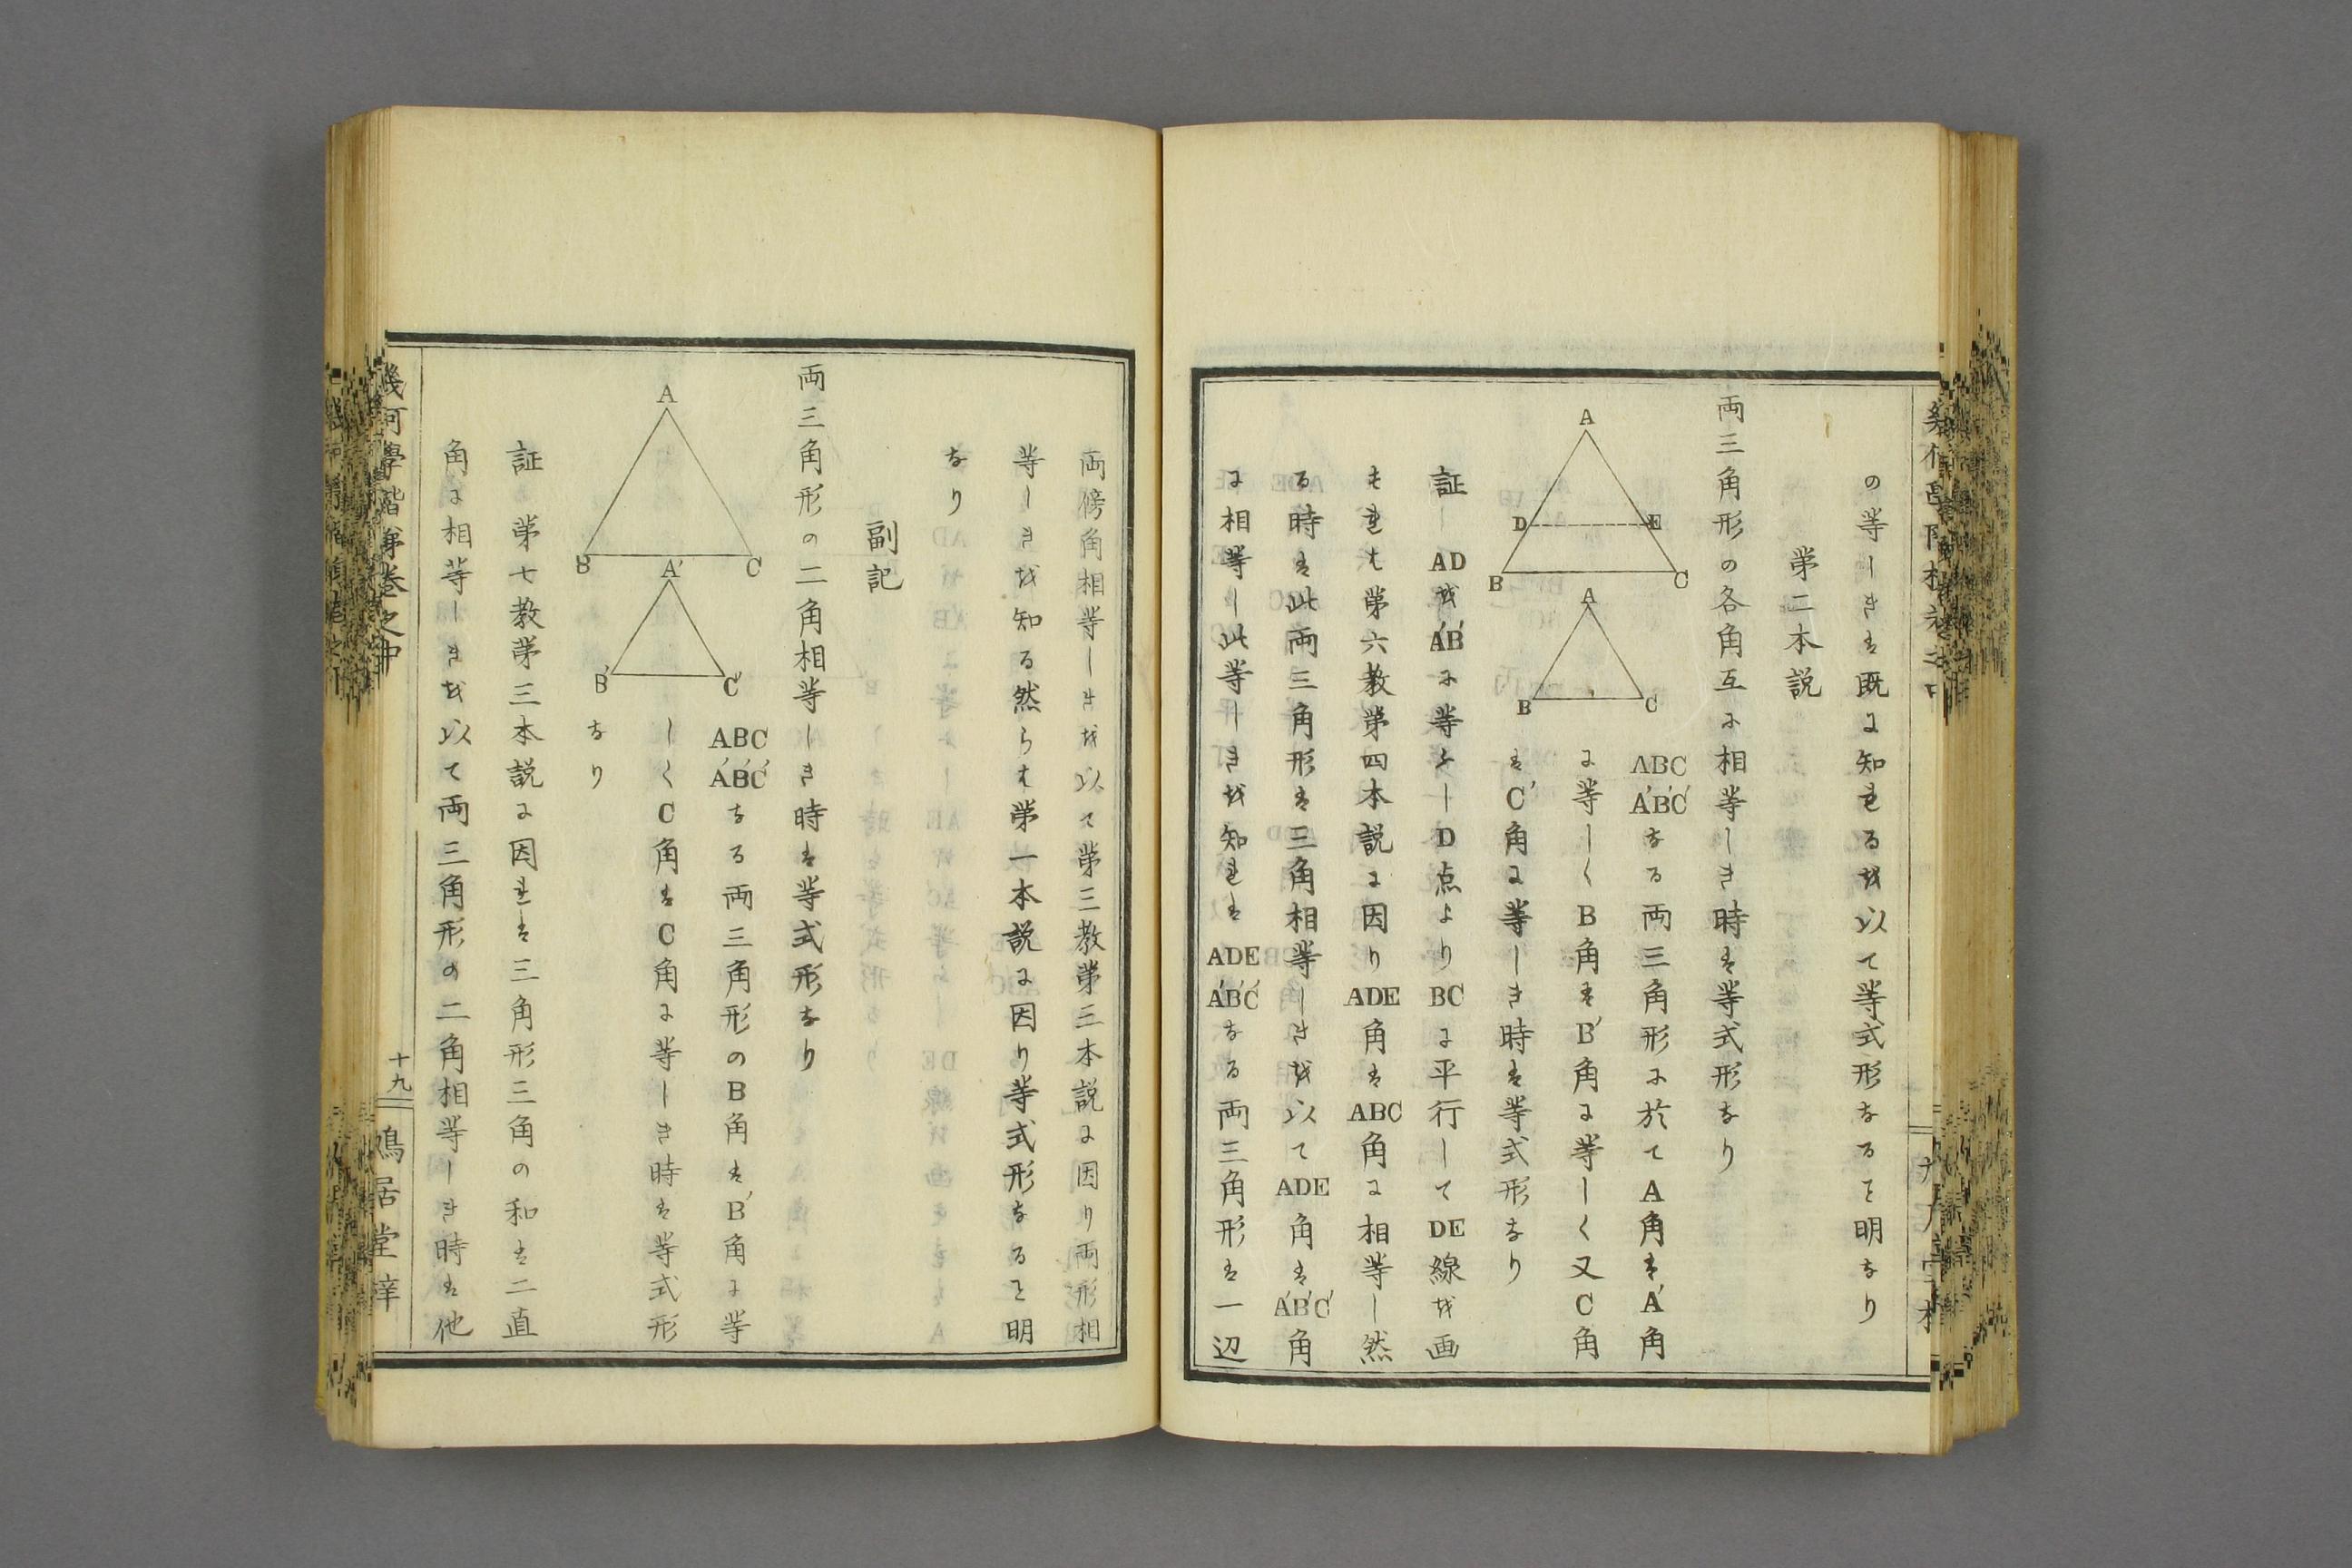 の等しきは既に知れるを以て等式形なるを明なり
第二本説
両三角形の各角互に相等しき時は等式形なり
A
D E
B C
A
B C
ABC
A'B'C'なる両三角形に於てA角はA'角
に等しくB角はB'角に等しく又C角
はC'角に等しき時は等式形なり
証 ADをA'B'に等ふしD点よりBCに平行してDE線を画
すれは第六教第四本説に因りADE角はABC角に相等し然
る時は此両三角形は三角相等しきを以てADE角はA'B'C'角
に相等し此等しきを知れはADE
A'B'C'なる両三角形は一辺
両傍角相等しきを以て第三教第三本説に因り両形相
等しきを知る然らは第一本説に因り等式形なるを明
なり
副記
両三角形の二角相等しき時は等式形なり
A
B C
A'
B' C'
ABC
A'B'C'なる両三角形のB角はB'角に等
しくC角はC角に等しき時は等式形
なり
証 第七教第三本説に因れは三角形三角の和は二直
角に相等しきを以て両三角形の二角相等しき時は他
幾何學階梯巻之中
十九